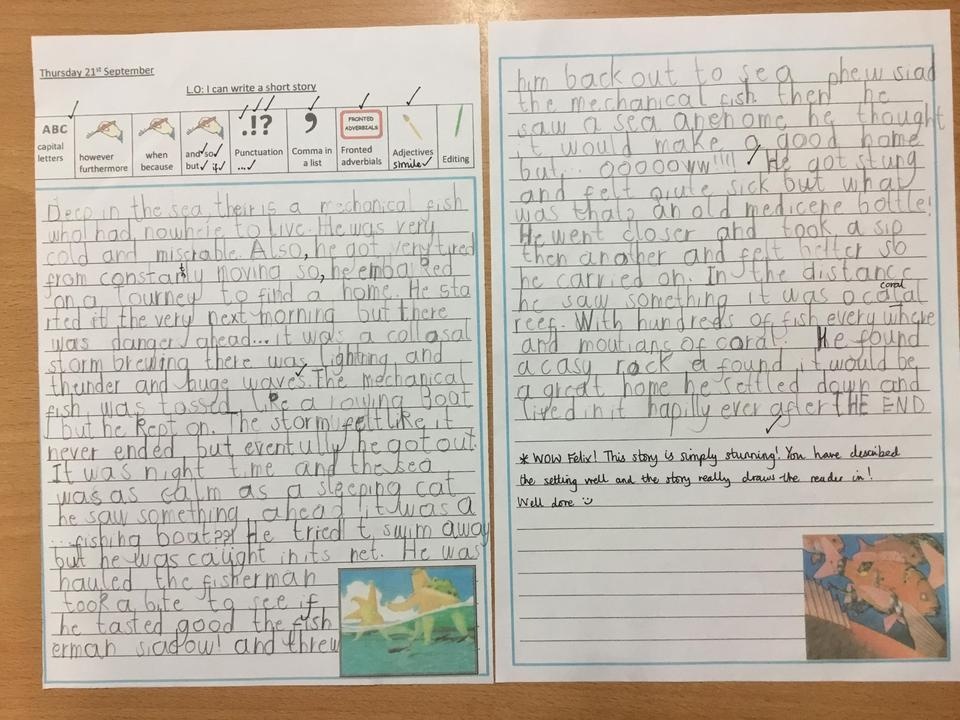 Thursday 21st September
L.O: I can write a short story
ABC
capital
letters
however
furthermore
when
because
and✓so✓
but✓if✓
.!?
Punctuation
...✓
,
Comma in
a list
FRONTED
ADVERBIALS
Fronted
adverbials
Adjectives
Simile✓
Editing
Deep in the sea, their is a mechanical fish
who had nowhrie to live. He was very
cold and misrable. Also, he got very tired
from constantly moving so, he embarked
on a Journey to find a home. He sta
rted it the very next morning but there
was danger ahead... it was a collasal
storm brewing there was lightning and
thunder and huge waves. The mechanical
fish, was tossed like a rowing Boat
but he kept on. The storm felt like it
never ended, but eventully he got out.
It was night time and the sea
was as calm as a sleeping cat
he saw something ahead it was a
...fishing boat??! He tried t swim away
but he was caught in its net. He was
hauled the fisherman
took a bite to see if
he tasted good the fish
erman siadow! and threw
him back out to sea phew siad
the mechanical fish. then he
saw a sea anenome he thought
it would make a good home
but... ooooow!!!! He got stung
and felt qiute sick but what
was that? an old medicene bottle!
He went closer and took a sip
then another and felt better so
he carried on. In the distance
coral
he saw something it was a
reef. With hundreds of fish every where
and moutians of coral. He found
a casy rock a found it would be
a great home he settled down and
lived in it happily ever after THE END
* WOW Felix! This story is simply stunning! You have described
the setting well and the story really draws the reader in!
Well done